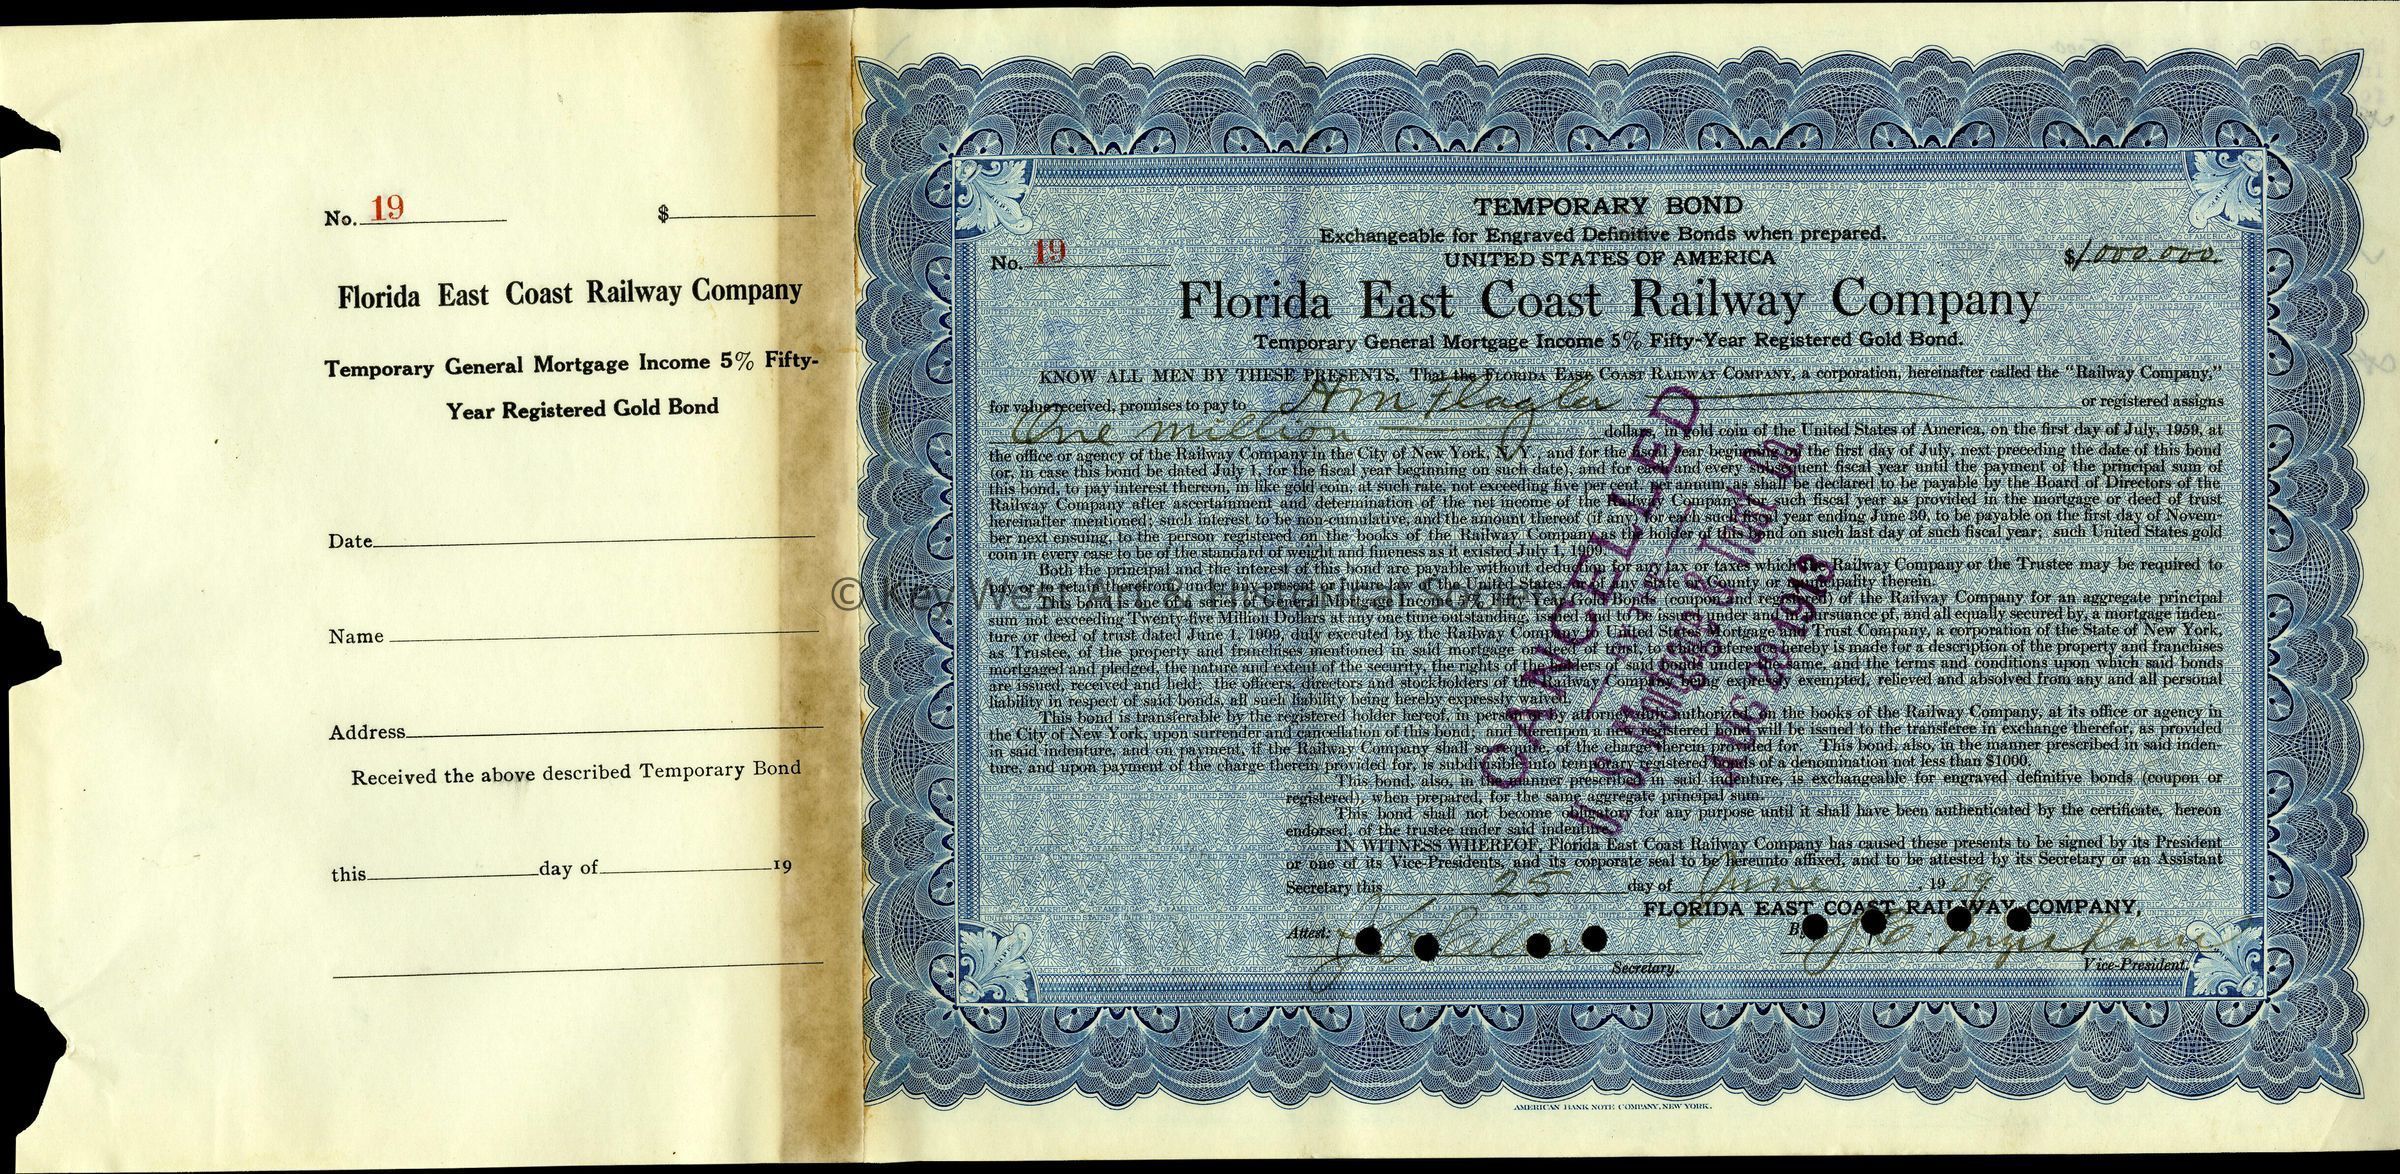 No. 19 $
Florida East Coast Railway Company
Temporary General Mortgage Income 5% Fifty-
Year Registered Gold Bond
Date
Name
Address
Received the above described Temporary Bond
this day of 19
TEMPORARY BOND
Exchangeable for Engraved Definitive Bonds when prepared.
No. 19 UNITED STATES OF AMERICA $1,000,000.
Florida East Coast Railway Company
Temporary General Mortgage Income 5% Fifty-Year Registered Gold Bond.
KNOW ALL MEN BY THESE PRESENTS, That the FLORIDA EAST COAST RAILWAY COMPANY, a corporation, hereinafter called the "Railway Company,"
for value received, promises to pay to HM Flagler or registered assigns
One million dollars, in gold coin of the United States of America, on the first day of July, 1959, at
the office or agency of the Railway Company in the City of New York, N. Y., and for the fiscal year beginning on the first day of July, next preceding the date of this bond
(or, in case this bond be dated July 1, for the fiscal year beginning on such date), and for each and every subsequent fiscal year until the payment of the principal sum of
this bond, to pay interest thereon, in like gold coin, at such rate, not exceeding five per cent. per annum, as shall be declared to be payable by the Board of Directors of the
Railway Company after ascertainment and determination of the net income of the Railway Company for such fiscal year as provided in the mortgage or deed of trust
hereinafter mentioned; such interest to be non-cumulative, and the amount thereof (if any) for each such fiscal year ending June 30, to be payable on the first day of Novem-
ber next ensuing, to the person registered on the books of the Railway Company as the holder of this bond on such last day of such fiscal year; such United States gold
coin in every case to be of the standard of weight and fineness as it existed July 1, 1909.
Both the principal and the interest of this bond are payable without deduction for any tax or taxes which the Railway Company or the Trustee may be required to
pay or to retain therefrom, under any present or future law of the United States, or of any State or County or municipality therein.
This bond is one of a series of General Mortgage Income 5% Fifty-Year Gold Bonds (coupon and registered) of the Railway Company for an aggregate principal
sum not exceeding Twenty-five Million Dollars at any one time outstanding, issued and to be issued under and in pursuance of, and all equally secured by, a mortgage inden-
ture or deed of trust dated June 1, 1909, duly executed by the Railway Company to United States Mortgage and Trust Company, a corporation of the State of New York,
as Trustee, of the property and franchises mentioned in said mortgage or deed of trust, to which reference hereby is made for a description of the property and franchises
mortgaged and pledged, the nature and extent of the security, the rights of the holders of said bonds under the same, and the terms and conditions upon which said bonds
are issued, received and held; the officers, directors and stockholders of the Railway Company being expressly exempted, relieved and absolved from any and all personal
liability in respect of said bonds, all such liability being hereby expressly waived.
This bond is transferable by the registered holder hereof, in person or by attorney duly authorized, on the books of the Railway Company, at its office or agency in
the City of New York, upon surrender and cancellation of this bond; and thereupon a new registered bond will be issued to the transferee in exchange therefor, as provided
in said indenture, and on payment, if the Railway Company shall so require, of the charge therein provided for. This bond, also, in the manner prescribed in said inden-
ture, and upon payment of the charge therein provided for, is subdivisible into temporary registered bonds of a denomination not less than $1000.
This bond, also, in the manner prescribed in said indenture, is exchangeable for engraved definitive bonds (coupon or
registered), when prepared, for the same aggregate principal sum.
This bond shall not become obligatory for any purpose until it shall have been authenticated by the certificate, hereon
endorsed, of the trustee under said indenture.
IN WITNESS WHEREOF, Florida East Coast Railway Company has caused these presents to be signed by its President
or one of its Vice-Presidents, and its corporate seal to be hereunto affixed, and to be attested by its Secretary or an Assistant
Secretary this 25 day of June, 1909
FLORIDA EAST COAST RAILWAY COMPANY,
Attest: By
Secretary. Vice-President.
CANCELLED
U S Mortgage & Trust Co
1913
AMERICAN BANK NOTE COMPANY, NEW YORK.
© Key West Art & Historical Society